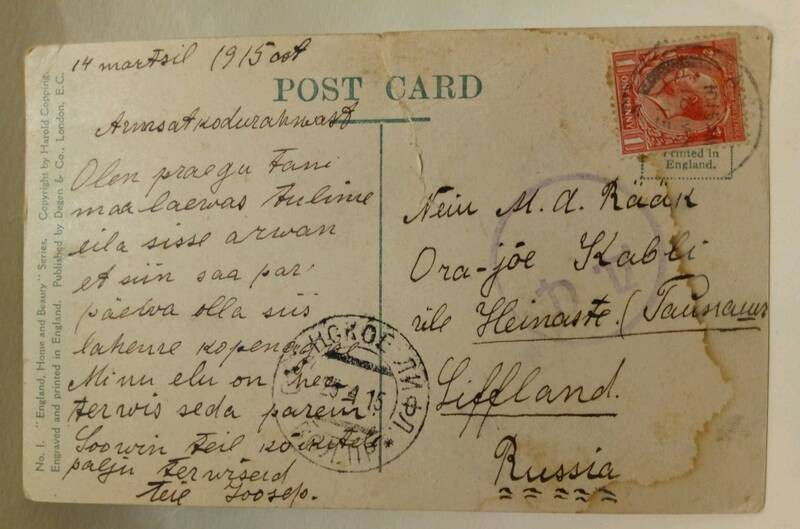 14 martsil 1915 ast
POST CARD
Armsat kodurahwast
Olen praegu Tani
maa laewas tulime
eila sisse arwan
et siin saa par
päewa olla siis
laheme kopenag
Minu elu on hea
terwis seda parem
Soowin teil kõikitele
palju terwiseid
teie Joosep.
No. 1. "England, Home and Beauty" Series. Copyright by Harold Copping.
Engraved and printed in England. Published by Degen & Co., London, E.C.
ONE PENNY
Printed in
England.
Neiu M. d. Rääk
Ora-jõe Kabli
üle Heinaste. (
Liffland.
Russia
ЛИФЛ
15